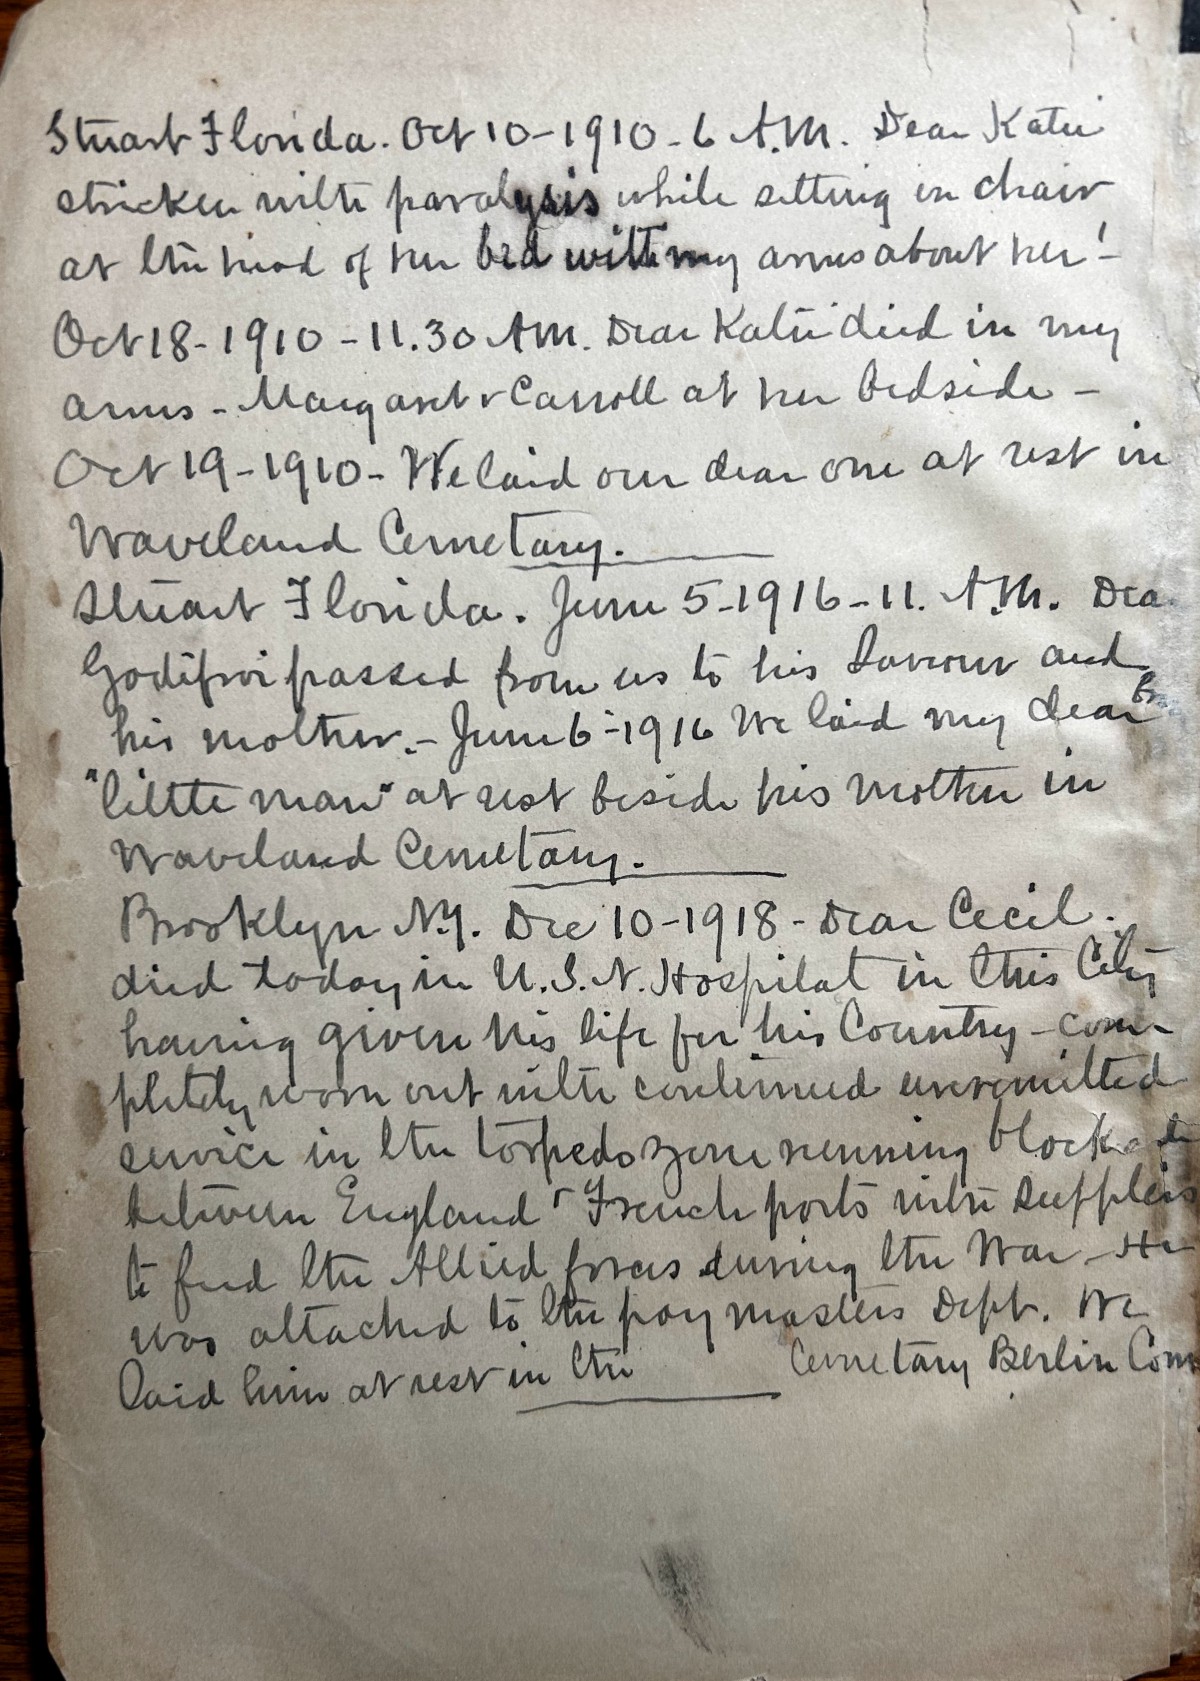 Stuart Florida. Oct 10-1910-6 A.M. Dear Katie
stricken with paralysis while sitting in chair
at the head of her bed with my arms about her! -
Oct 18-1910-11.30 AM. Dear Katie died in my
arms - Margaret & Carroll at her bedside -
Oct 19-1910- We laid our dear one at rest in
Waveland Cemetary.
Stuart Florida. June 5-1916-11. A.M. Dea
Godifroi passed from us to his Saviour and
his mother.- June 6-1916 We laid my dear
"little man" at rest beside his mother in
Waveland Cemetary.
Brooklyn N.Y. Dec 10-1918- Dear Cecil.
died today in U.S.N. Hospital in this City
having given his life for his Country - com-
pletely worn out with continued unremitted
service in the torpedo zone running block
between England & French ports with supplies
to feed the Allied forces during the War - He
was attached to the paymasters Dept. We
laid him at rest in the Cemetary Berlin Conn